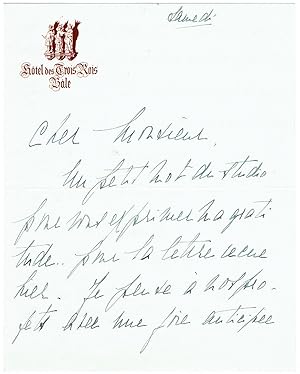 Samedi
Hôtel des Trois Rois
Bâle
Cher Monsieur,
Un petit mot du studio
pour vous exprimer ma grati
tude.. pour la lettre reçue
hier. Je pense à nos pro-
jets avec une joie anticipée